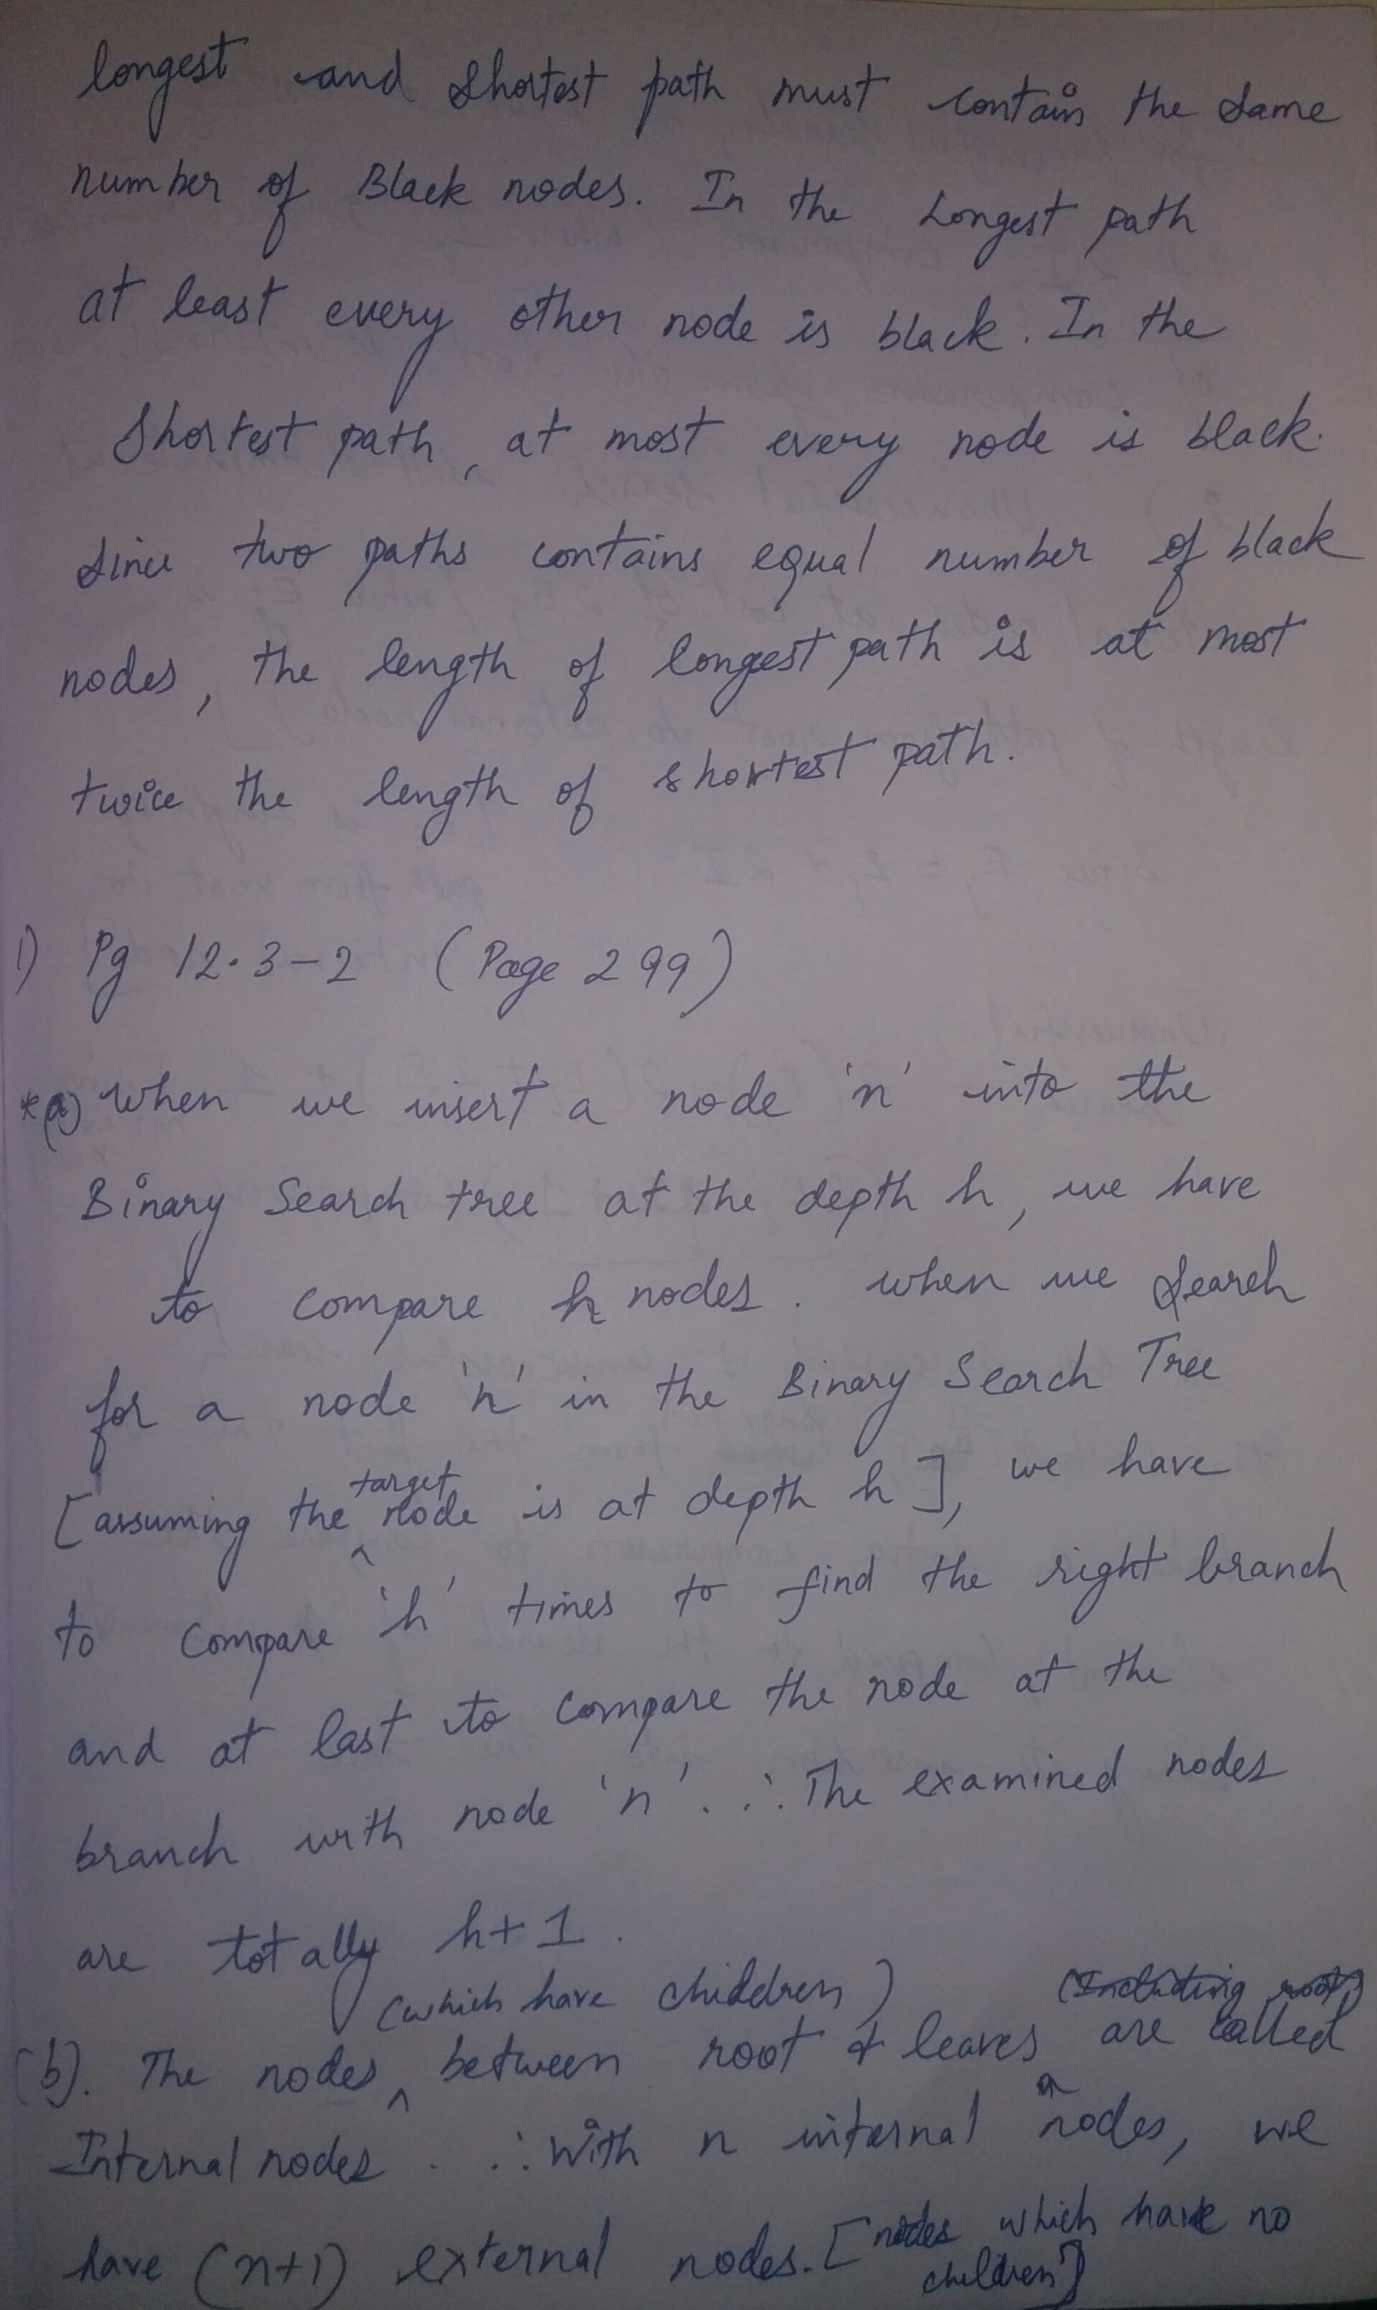 longest and shortest path must contain the same
number of Black nodes. In the Longest path
at least every other node is black. In the
Shortest path, at most every node is black.
Since two paths contains equal number of black
nodes, the length of longest path is at most
twice the length of shortest path.
1) Pg 12.3-2 (Page 299)
*(a) when we insert a node 'n' into the
Binary Search tree at the depth h, we have
to compare h nodes. when we search
for a node 'n' in the Binary Search Tree
[assuming the target node is at depth h], we have
to compare 'h' times to find the right branch
and at last to compare the node at the
branch with node 'n'. ∴ The examined nodes
are totally h+1.
(which have children) (Including root)
(b). The nodes ^ between root & leaves are called
Internal nodes. ∴ With n internal nodes, we
have (n+1) external nodes. [nodes which have no
children]